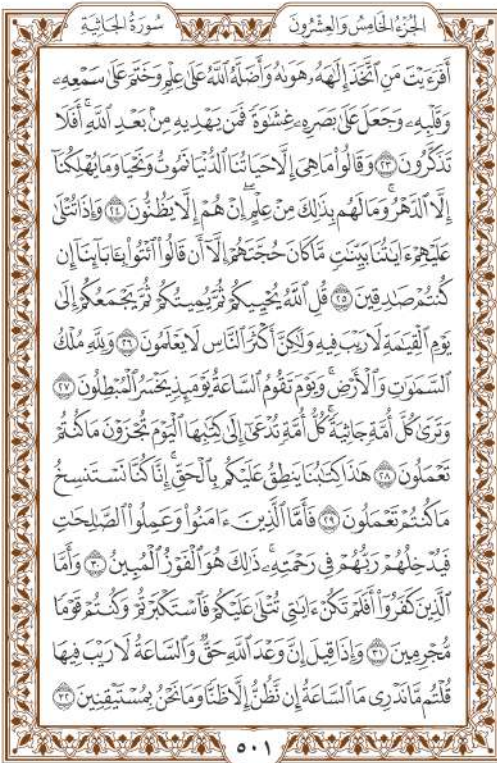 الجُزْءُ الخَامِسُ وَالعِشْرُونَ سُورَةُ الجَاثِيَةِ
أَفَرَءَيْتَ مَنِ ٱتَّخَذَ إِلَٰهَهُۥ هَوَىٰهُ وَأَضَلَّهُ ٱللَّهُ عَلَىٰ عِلْمٍ وَخَتَمَ عَلَىٰ سَمْعِهِۦ
وَقَلْبِهِۦ وَجَعَلَ عَلَىٰ بَصَرِهِۦ غِشَٰوَةً فَمَن يَهْدِيهِ مِنۢ بَعْدِ ٱللَّهِ ۚ أَفَلَا
تَذَكَّرُونَ ٢٣ وَقَالُوا۟ مَا هِىَ إِلَّا حَيَاتُنَا ٱلدُّنْيَا نَمُوتُ وَنَحْيَا وَمَا يُهْلِكُنَآ
إِلَّا ٱلدَّهْرُ ۚ وَمَا لَهُم بِذَٰلِكَ مِنْ عِلْمٍ ۖ إِنْ هُمْ إِلَّا يَظُنُّونَ ٢٤ وَإِذَا تُتْلَىٰ
عَلَيْهِمْ ءَايَٰتُنَا بَيِّنَٰتٍ مَّا كَانَ حُجَّتَهُمْ إِلَّآ أَن قَالُوا۟ ٱئْتُوا۟ بِـَٔابَآئِنَآ إِن
كُنتُمْ صَٰدِقِينَ ٢٥ قُلِ ٱللَّهُ يُحْيِيكُمْ ثُمَّ يُمِيتُكُمْ ثُمَّ يَجْمَعُكُمْ إِلَىٰ
يَوْمِ ٱلْقِيَٰمَةِ لَا رَيْبَ فِيهِ وَلَٰكِنَّ أَكْثَرَ ٱلنَّاسِ لَا يَعْلَمُونَ ٢٦ وَلِلَّهِ مُلْكُ
ٱلسَّمَٰوَٰتِ وَٱلْأَرْضِ ۚ وَيَوْمَ تَقُومُ ٱلسَّاعَةُ يَوْمَئِذٍ يَخْسَرُ ٱلْمُبْطِلُونَ ٢٧
وَتَرَىٰ كُلَّ أُمَّةٍ جَاثِيَةً ۚ كُلُّ أُمَّةٍ تُدْعَىٰٓ إِلَىٰ كِتَٰبِهَا ٱلْيَوْمَ تُجْزَوْنَ مَا كُنتُمْ
تَعْمَلُونَ ٢٨ هَٰذَا كِتَٰبُنَا يَنطِقُ عَلَيْكُم بِٱلْحَقِّ ۚ إِنَّا كُنَّا نَسْتَنسِخُ
مَا كُنتُمْ تَعْمَلُونَ ٢٩ فَأَمَّا ٱلَّذِينَ ءَامَنُوا۟ وَعَمِلُوا۟ ٱلصَّٰلِحَٰتِ
فَيُدْخِلُهُمْ رَبُّهُمْ فِى رَحْمَتِهِۦ ۚ ذَٰلِكَ هُوَ ٱلْفَوْزُ ٱلْمُبِينُ ٣٠ وَأَمَّا
ٱلَّذِينَ كَفَرُوٓا۟ أَفَلَمْ تَكُنْ ءَايَٰتِى تُتْلَىٰ عَلَيْكُمْ فَٱسْتَكْبَرْتُمْ وَكُنتُمْ قَوْمًا
مُّجْرِمِينَ ٣١ وَإِذَا قِيلَ إِنَّ وَعْدَ ٱللَّهِ حَقٌّ وَٱلسَّاعَةُ لَا رَيْبَ فِيهَا
قُلْتُم مَّا نَدْرِى مَا ٱلسَّاعَةُ إِن نَّظُنُّ إِلَّا ظَنًّا وَمَا نَحْنُ بِمُسْتَيْقِنِينَ ٣٢
٥٠١